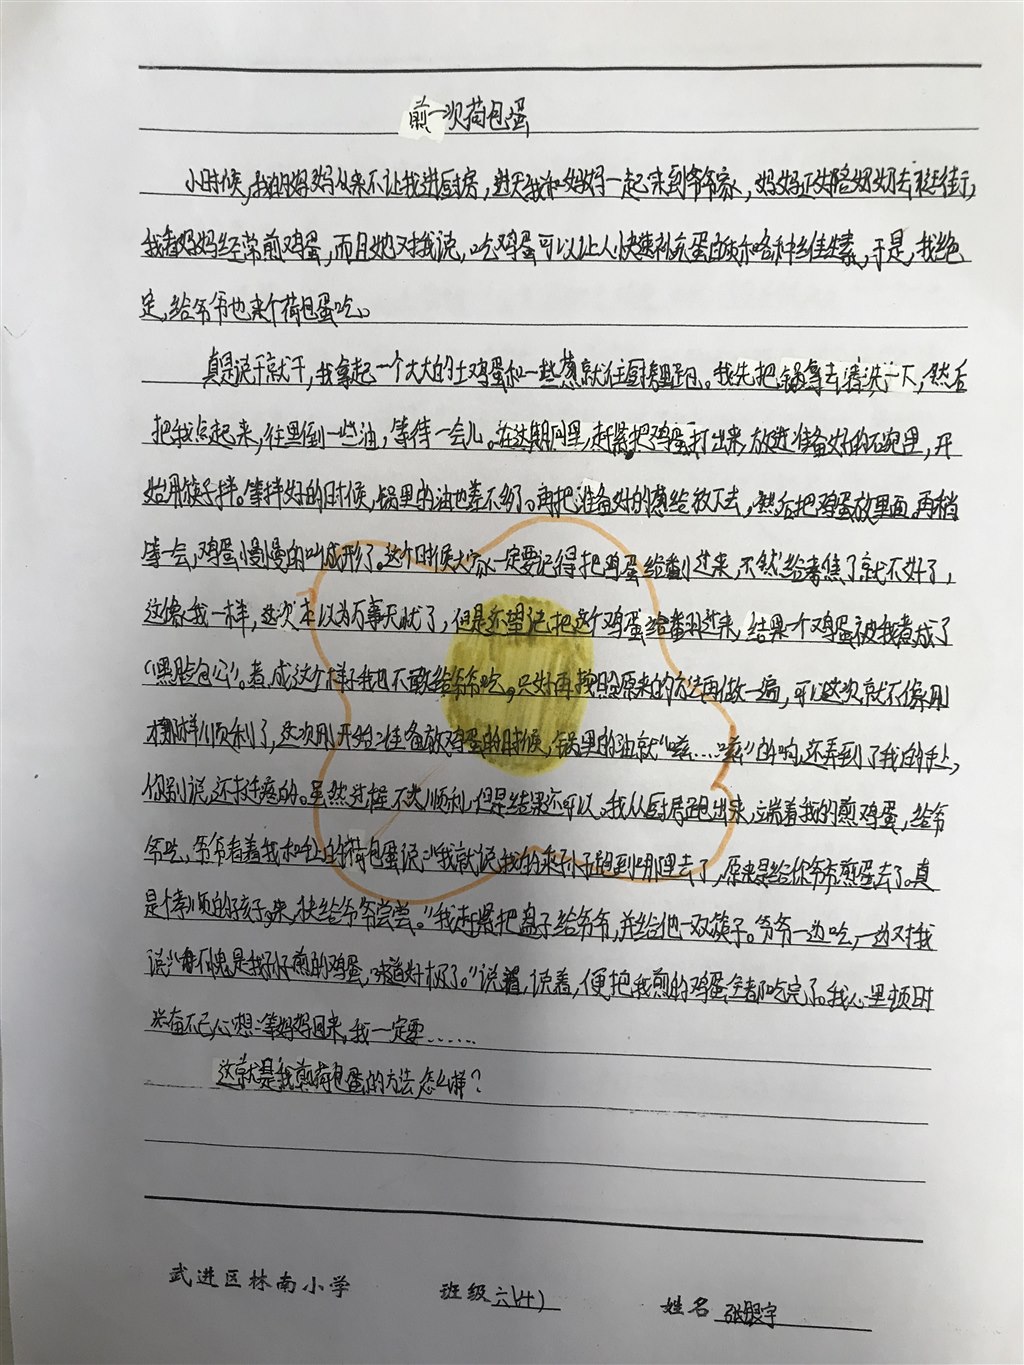 煎一次荷包蛋
小时候,我的妈妈从来不让我进厨房,这天我和妈妈一起来到爷爷家,妈妈正好陪奶奶去逛街,
我看妈妈经常煎鸡蛋,而且她又对我说,吃鸡蛋可以让人快速补充蛋白质和各种维生素,于是,我绝
定,给爷爷也来个荷包蛋吃。
真是说干就干,我拿起一个大大的土鸡蛋和一些葱就往厨房里跑。我先把锅拿去清洗一下,然后
把我点起来,往里倒一些油,等待一会儿。在这期间里,赶紧把鸡蛋打出来,放进准备好的碗里,开
始用筷子拌。等拌好的时候,锅里的油也差不多了。再把准备好的葱给放下去,然后把鸡蛋放里面。再稍
等一会,鸡蛋慢慢的叫成形了。这个时候大家一定要记得把鸡蛋给翻过来,不然给煮焦了就不好了,
这像我一样,这次本以为万事无忧了,但是还望记把这个鸡蛋给翻过来,结果一个鸡蛋被我煮成了
“黑脸包公”。煮成这个样子我也不敢给爷爷吃。只好再按照原来的方法再做一遍,可以这次就不像刚
才那样顺利了,这次刚开始准备放鸡蛋的时候,锅里的油就“嗞……嗞”的响,还弄到了我的手上,
你别说,还挺疼的。虽然过程不太顺利,但是结果还可以。我从厨房跑出来,端着我的煎鸡蛋,给爷
爷吃,爷爷看着我和的荷包蛋说:“我就说我的乖孙子跑到哪里去了,原来是给你爷爷煎蛋去了。真
是个孝顺的好孩子。来,快给爷爷尝尝。”我赶紧把盘子给爷爷,并给他一双筷子。爷爷一边吃,一边对我
说:“不愧是我孙仔煎的鸡蛋,味道好极了。”说着,说着,便把我煎的鸡蛋全都吃完了。我心里顿时
兴奋不已,心想:等妈妈回来,我一定要……
这就是我煎荷包蛋的方法,怎么样?
武进区林南小学 班级 六(4) 姓名 张银宇